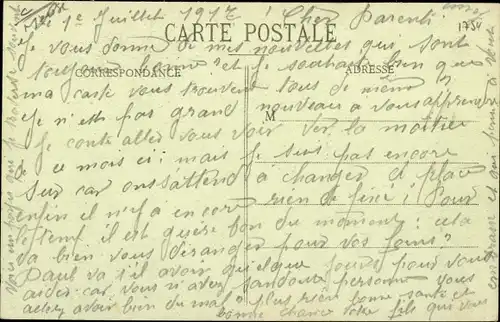 le 1e Juillet 1917 Cher Parents
1754
CARTE POSTALE
Je vous donne de mes nouvelles qui sont
toujours bonne et je souhaite bien que
CORRESPONDANCE ADRESSE
ma carte vous trouvent tous de même
Je n'est pas grand nouveau a vous apprendre
M
Je conte allez vous voir ver la moitier
de ce mois ci mais je suis pas encore
sur car on s'attend a changer de place
enfin il n'y a encore rien de fixé Pour
le temp il est guere bon du moment cela
va bien vous déranger pour vos foins
Paul va s'il avoir quelque jours pour vous
aider car vous n'avez sans doute personne vous
allez avoir bien du mal plus rien bonne santé et
bonne chance votre fils qui vous